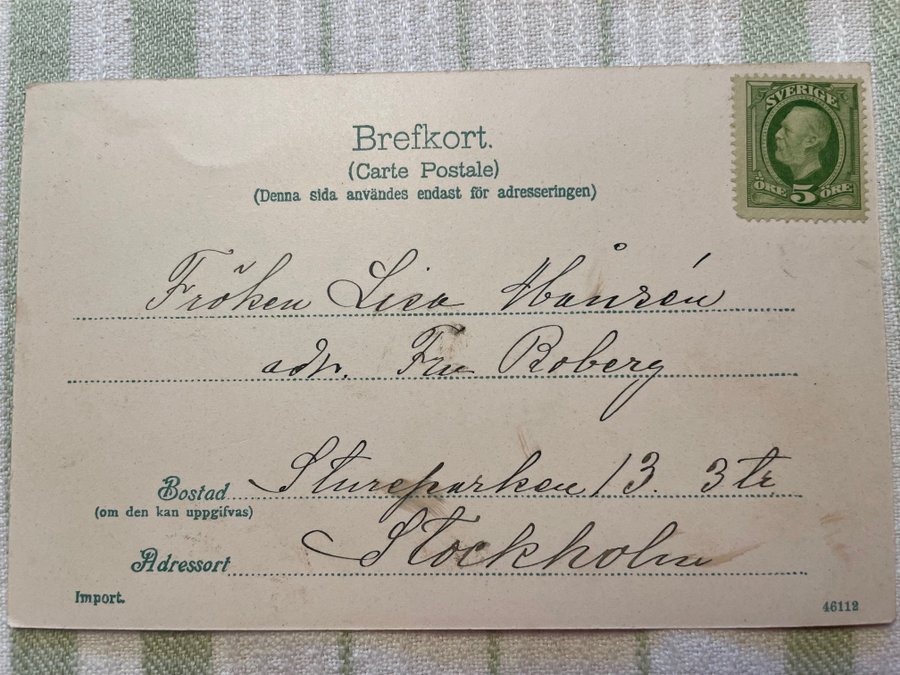 Brefkort.
(Carte Postale)
(Denna sida användes endast för adresseringen)
SVERIGE
ÖRE 5 ÖRE
Fröken Lisa Månsén
adr. Fru Roberg
Bostad Stureparken 13. 3 tr.
(om den kan uppgifvas)
Adressort Stockholm
Import.
46112